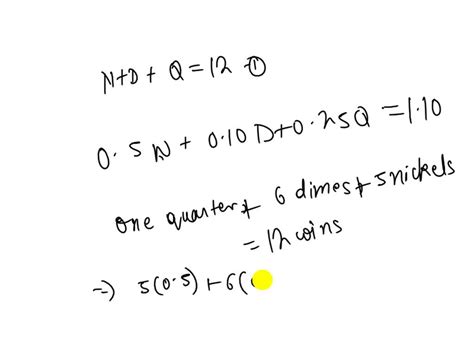 N+D+Q=12 ①
0.5N+0.10D+0.25Q=1.10
One quarter + 6 dimes + 5 nickels
=12 coins
⇒ 5(0.5)+6(